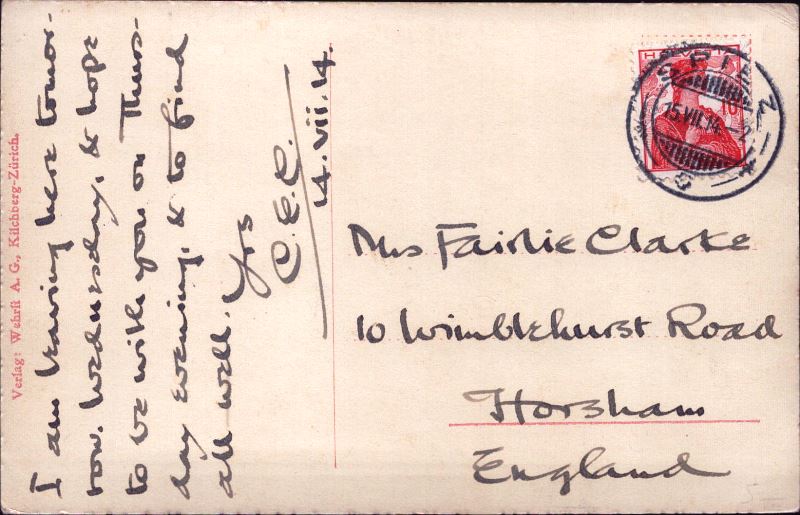 I am leaving here tomor-
row. Wednesday, & hope
to be with you on Thurs-
day evening, & to find
all well. Yrs
C.E.C.
14.vii.14.
Verlag: Wehrli A. G., Kilchberg-Zürich.
HELVETIA
10
SPIEZ
15.VII.14.–2
Mrs Fairlie Clarke
10 Wimblehurst Road
Horsham
England
5-